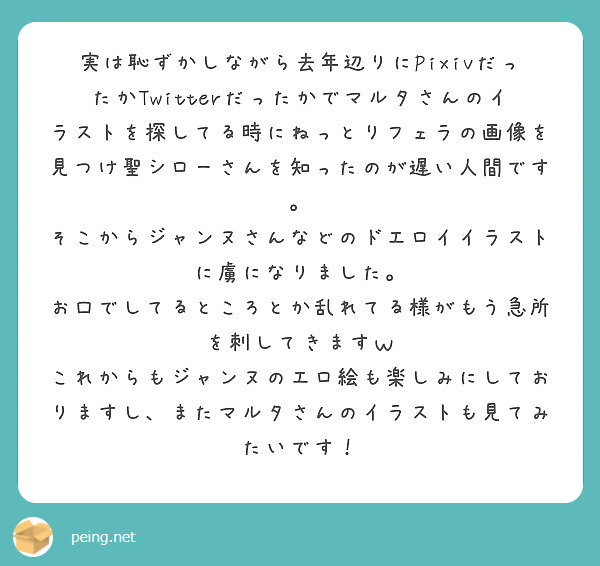 実は恥ずかしながら去年辺りにPixivだっ
たかTwitterだったかでマルタさんのイ
ラストを探してる時にねっとりフェラの画像を
見つけ聖シローさんを知ったのが遅い人間です
。
そこからジャンヌさんなどのドエロイイラスト
に虜になりました。
お口でしてるところとか乱れてる様がもう急所
を刺してきますw
これからもジャンヌのエロ絵も楽しみにしてお
りますし、またマルタさんのイラストも見てみ
たいです！
peing.net